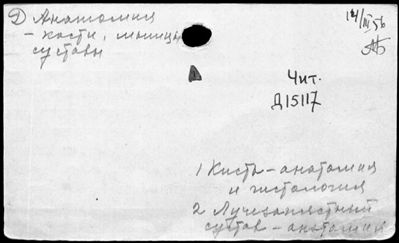 Д Анатомия
- кости, мышцы
суставы
14/III 56
Чит.
Д15117
1 Кисть - анатомия
и гистология
2 Лучезапястный
сустав - анатомия